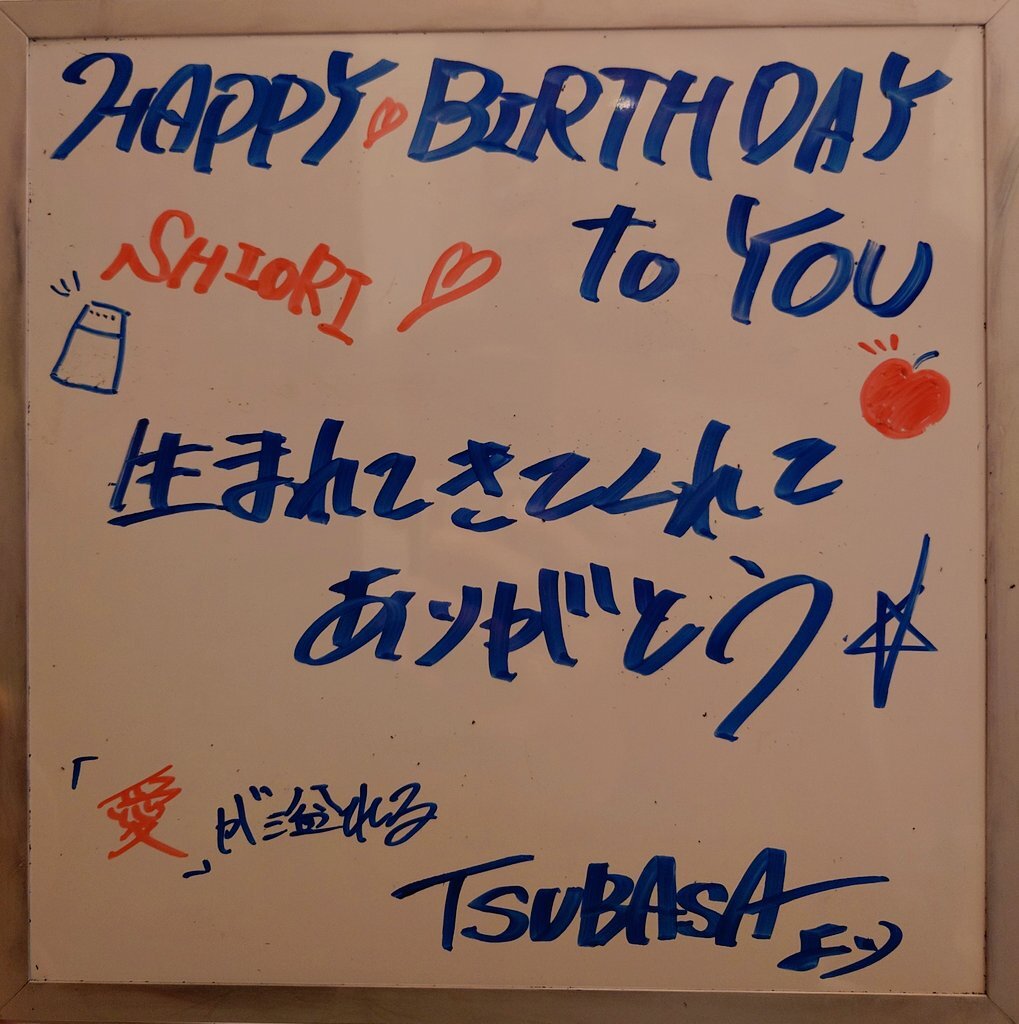 HAPPY♥BIRTHDAY
to YOU
~SHIORI♡
生まれてきてくれて
ありがとう☆
「愛」が溢れる
TSUBASAより